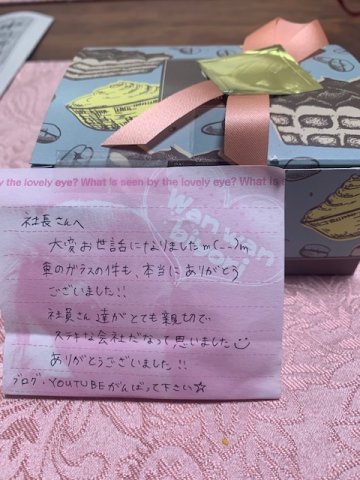 by the lovely eye? What is seen by the lovely eye? What is
Wan wan
biyori
社長さんへ
大変お世話になりましたm(-_-)m
車のガラスの件も、本当にありがとう
ございました!!
社員さん達がとても親切で
ステキな会社だなって思いました
ありがとうございました!!
ブログ・YOUTUBEがんばって下さい☆